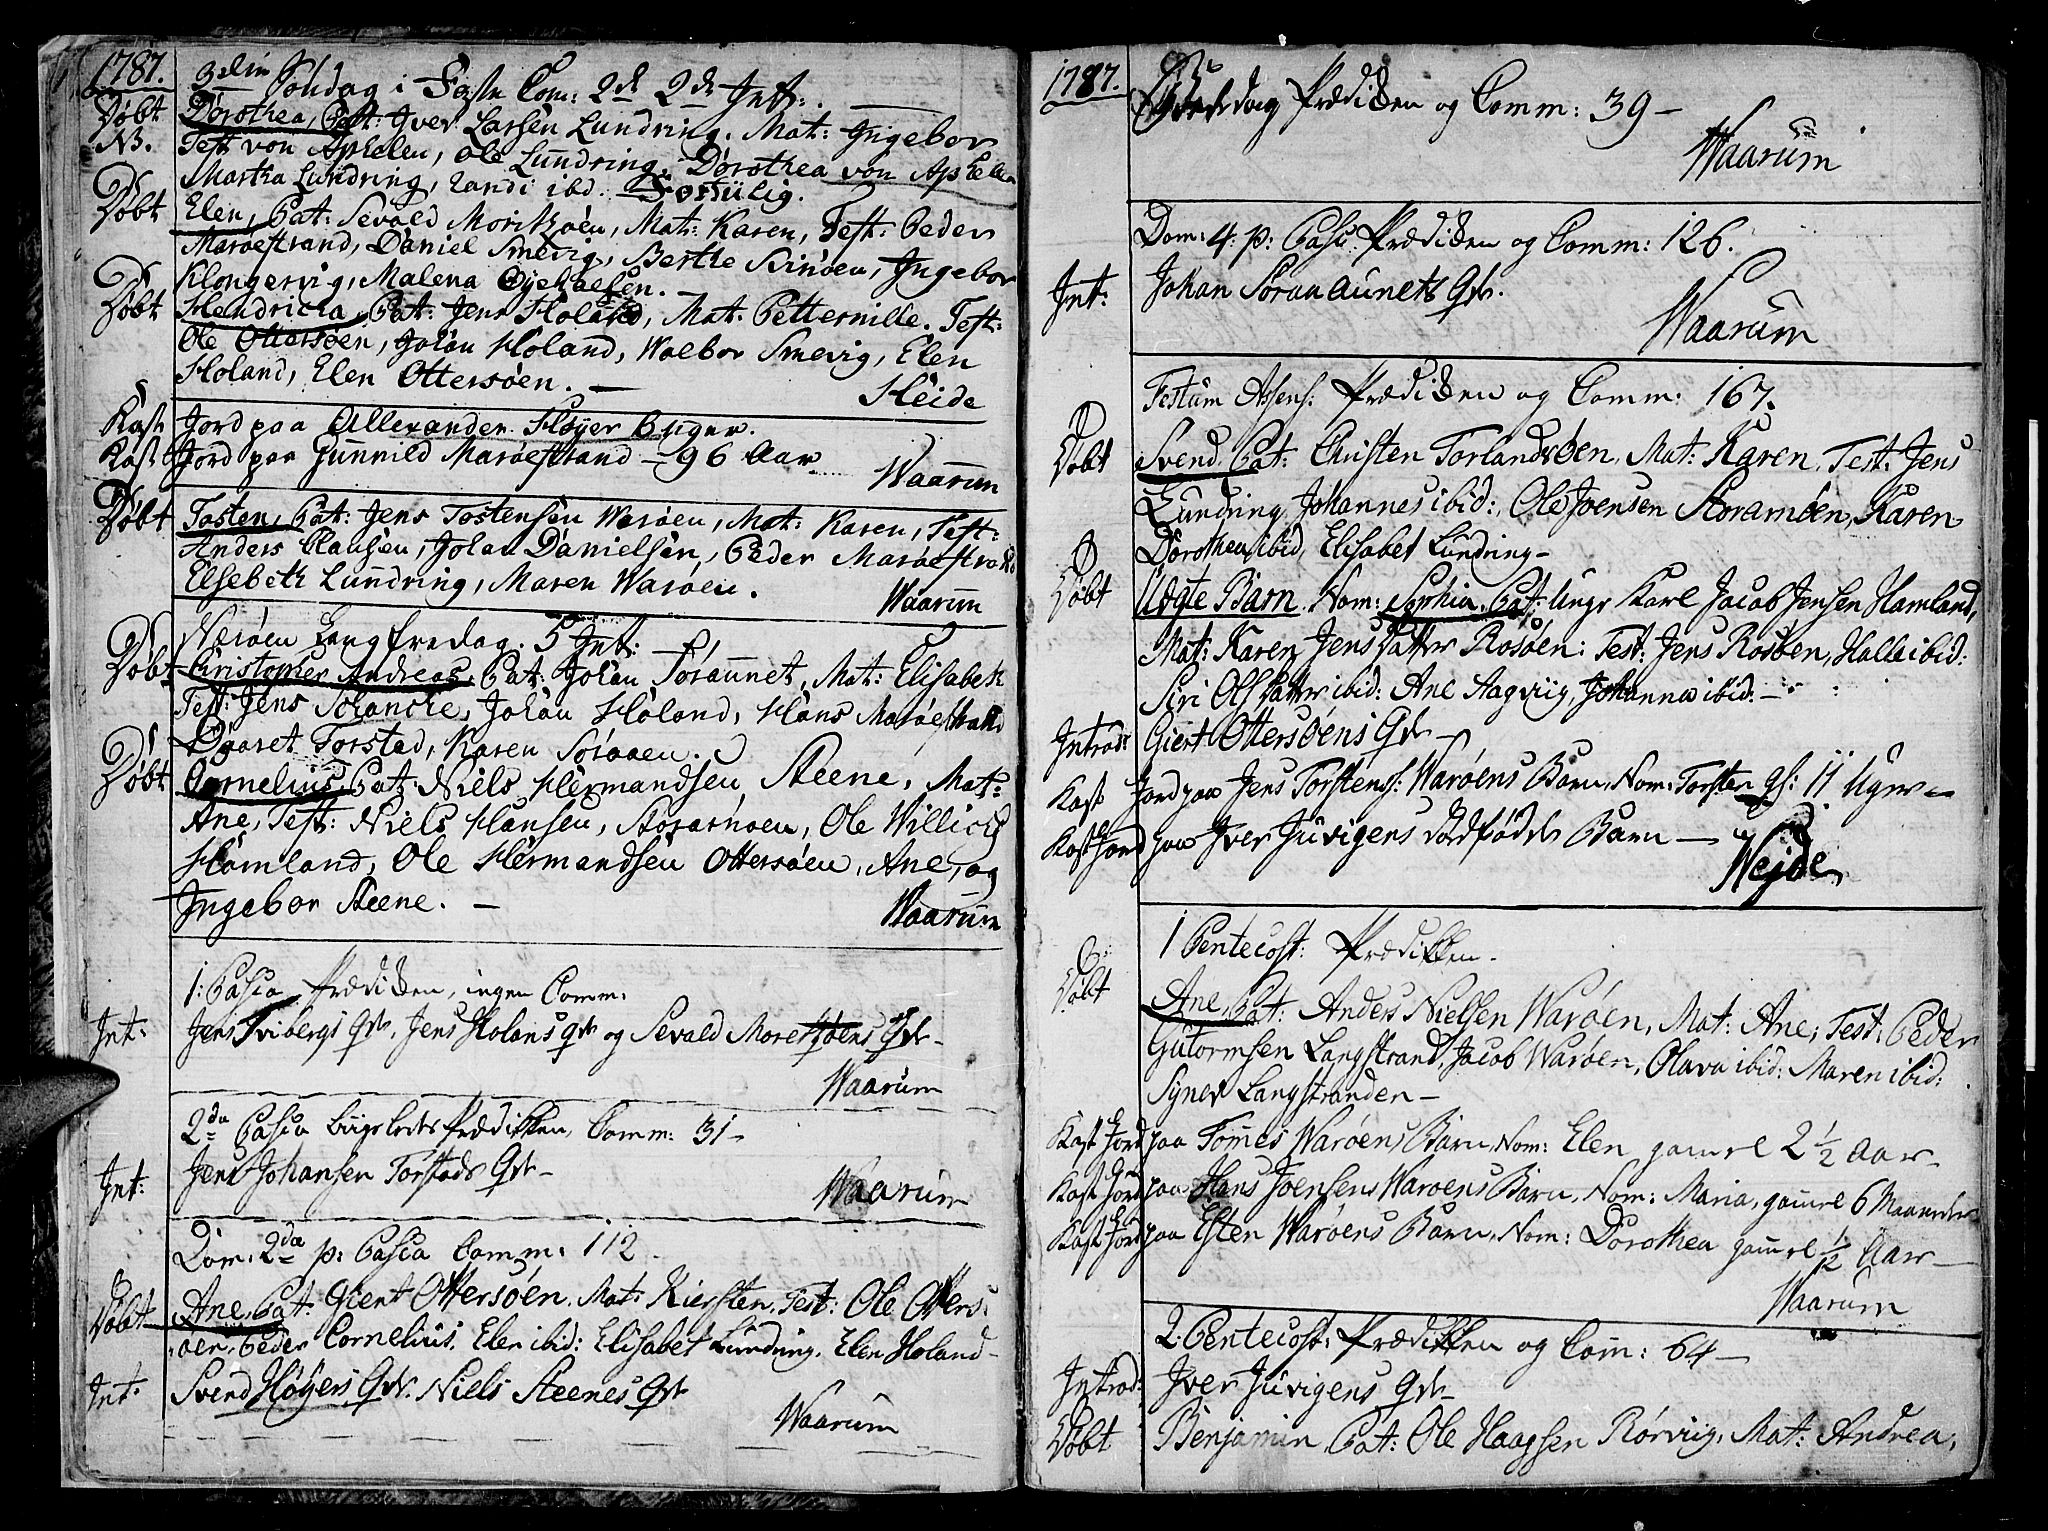 1787.
3die Søndag i Faste Com: 2d 2de Int:
Døbt Dorothea, Pat: Iver Larsen Lundring. Mat: Ingebor
NB. Test von Aphelen, Ole Lundring, Dorothea von Aphelen
Martha Lundring, Randi ibd.
Døbt Elen, Pat: Sevald Moritzøen, Mat: Karen, Test: Peder
Marøestrand, Daniel Smevig, Berthe Svinøen, Ingebor
Klongervig, Malena
Døbt Hendricka, Pat: Jens Holand, Mat: Petternille. Test:
Ole Ottersøen, Johan Holand, Woebor Smevig, Elen
Holand, Elen Ottersøen. —
Heide
Kast Jord paa Allexander Høyer 6 uger.
Kast Jord paa Gunnild Marøestrand — 96 Aar
Waarum
Døbt Tosten, Pat: Jens Tostensen Warøen, Mat: Karen, Test:
Anders Clausen, Johan Danielsen, Peder Marøestrand
Elsebeth Lundring, Maren Warøen.
Waarum
Nærøen Langfredag. 5 Int:
Døbt Christopher Andreas, Pat: Johan Søraunet, Mat: Elisabeth
Test: Jens Schancke, Johan Holand, Hans Marøestrand
Ogaret Torstad, Karen Søraaen.
Døbt Cornelius, Pat: Niels Hermandsen Steene, Mat:
Ane, Test: Niels Hansen, Storarnøen, Ole Willicks
Hamland, Ole Hermandsen Ottersøen, Ane, og
Ingebor Steene. —
Waarum
1: Pasca Prædikken, ingen Comm:
Int: Jens Tvibergs Qde. Jens Holans Qde og Sevald Moretzøens Qde —
Waarum
2da Pasca Prædikken, Comm: 31 —
Int: Jens Johansen Torstads Qde —
Waarum
Dom: 2dæ p: Pasca Comm: 112
Døbt Ane, Pat: Giert Ottersøen, Mat: Kiersten, Test: Ole Otters:
øen, Peder Cornelius, Elen ibid: Elisabet Lundring, Elen Holand —
Int: Svend Høyers Qde. Niels Steenes Qde
Waarum
1787.
Prædikken og Comm: 39 —
Waarum
Dom: 4: p: Pasc: Prædikken og Comm: 126.
Int: Johan Søraaunets Qde.
Waarum
Festum Assens: Prædikken og Comm: 167.
Døbt Svend, Pat: Christen Torlandsøen, Mat: Karen, Test: Jens
Lundring, Johannes ibid:, Ole Joensen Storamøen, Karen
Dorothea ibid, Elisabet Lundring —
Døbt Uægte Barn. Nom: Sophia, Pat: Ungr Karl Jacob Jensen Hamland,
Mat: Karen Jens Datter Rosøen: Test: Jens Rosøen, Halle ibid:
Siri Ols Datter ibid: Ane Aagviig, Johanna ibid. —
Introd: Giert Ottersøens Qde —
Kast Jord paa Jens Torstens: Warøens Barn, Nom: Torsten gl: 11 Uger —
Kast Jord paa Iver Juvigens dødfødde Barn —
Hejde
1 Pentecost: Prædikken —
Døbt Ane, Pat: Anders Nielsen Warøen, Mat: Ane, Test: Peder
Gutormsen Langstrand, Jacob Warøen, Olava ibid: Maren ibid:
Synev Langstranden —
Kast Jord paa Tomes Warøens Barn, Nom: Elen gamel 2 1/2 Aar —
Kast Jord paa Hans Joensens Warøens Barn, Nom: Maria, gamel 6 Maaneder
Kast Jord paa Esten Warøens Barn, Nom: Dorothea gamel 1/2 Aar —
Waarum
2: Pentecost: Prædikken og Com: 64 —
Introd: Iver Juvigens Qde —
Døbt Benjamin, Pat: Ole Haagsen Rørviig, Mat: Andrea,